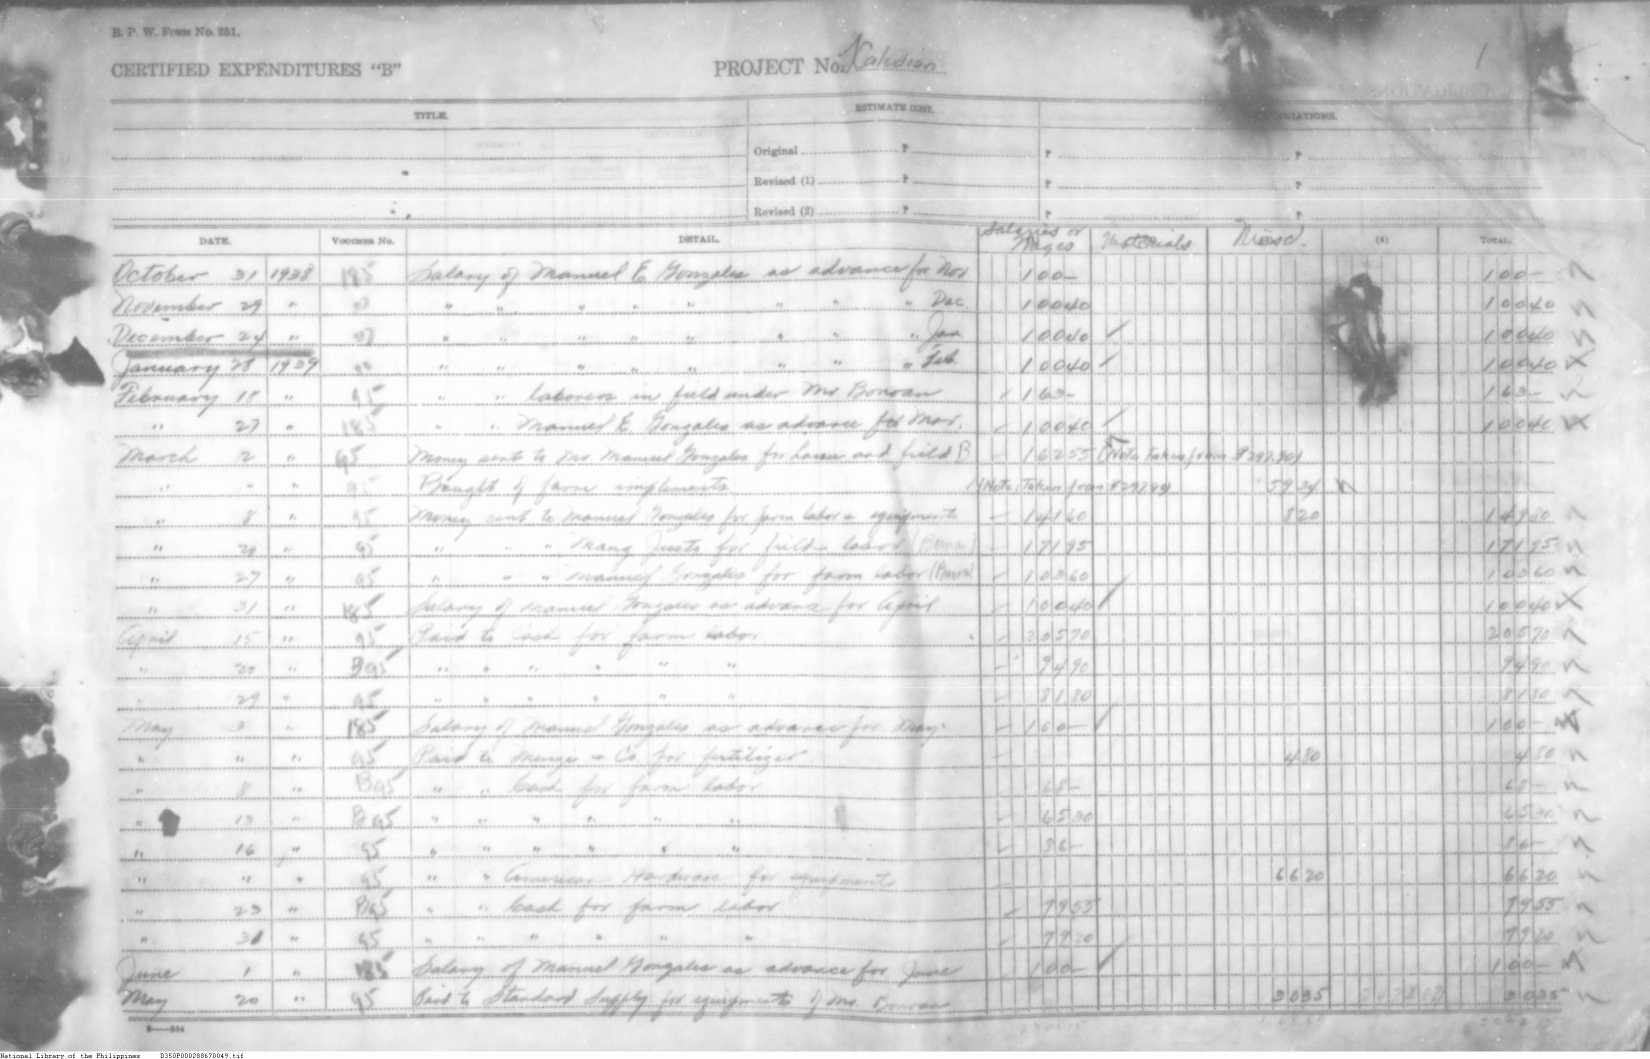 B. P. W. Form No. 251.
CERTIFIED EXPENDITURES "B" PROJECT No. 1
TITLE. ESTIMATE COST.
Original ₱ ₱ ₱
Revised (1) ₱ ₱ ₱
Revised (2) ₱ ₱ ₱
DATE. VOUCHER No. DETAIL. Salaries or Wages Materials Miscl. (4) TOTAL.
October 31 1938 185 Salary of Manuel E. Gonzales as advance for Nov 100— 100—
November 29 " " " " " " " " " Dec. 10040 10040
December 24 " " " " " " " " " Jan 10040 10040
January 28 1939 " " " " " " " " Feb. 10040 10040
February 18 " 95 " " laborers in field under Mr Donovan 163— 163—
" 27 " 185 " " Manuel E. Gonzales as advance for Mar. 10040 10040
March 2 " 95 Money sent to Mr. Manuel Gonzales for and field 16255 (Note Taken from
" " " 95 Bought of farm implements (Note: Taken from 5934
" 8 " 95 Money sent to Manuel Gonzales for farm labor & equipment 14160 820 14980
" 20 " 95 " " " for field labor 17195 17195
" 27 " 95 " " " Manuel Gonzales for farm labor 10360 10360
" 31 " 185 Salary of Manuel Gonzales as advance for April 10040 10040
April 15 " 95 Paid to Cash for farm labor 20570 20570
" 20 " B95 " " " " " " 9490 9490
" 29 " 95 " " " " " " 8180 8180
May 3 " 185 Salary of Manuel Gonzales as advance for May 100— 100—
" " " 95 Paid to Menzi & Co. for fertilizer 480 480
" 8 " B95 " " Cash for farm labor 68— 68—
" 13 " B95 " " " " " " 6530 6530
" 16 " 95 " " " " " " 86— 86—
" " " 95 " " American Hardware for equipments 6620 6620
" 23 " B95 " " Cash for farm labor 7955 7955
" 31 " 95 " " " " " " 7920 7920
June 1 " 185 Salary of Manuel Gonzales as advance for June 100— 100—
May 20 " 95 Paid to Standard Supply for equipments of Mr. Donovan 3035 3035
National Library of the Philippines D350P000288670049.tif